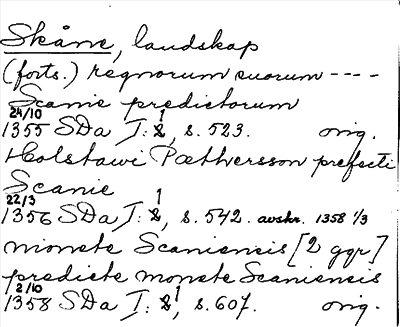 Skåne, landskap
(forts.) regnorum suorum ----
Scanie predictorum
24/10
1355 SDa I: 1, s. 523. orig.
Holstawi Pæthersson prefecti
Scanie
22/3
1356 SDa I: 1, s. 542. avskr. 1358 1/3
monete Scaniensis [2 ggr]
predicte monete Scaniensis
2/10
1358 SDa I: 1, s. 607. orig.